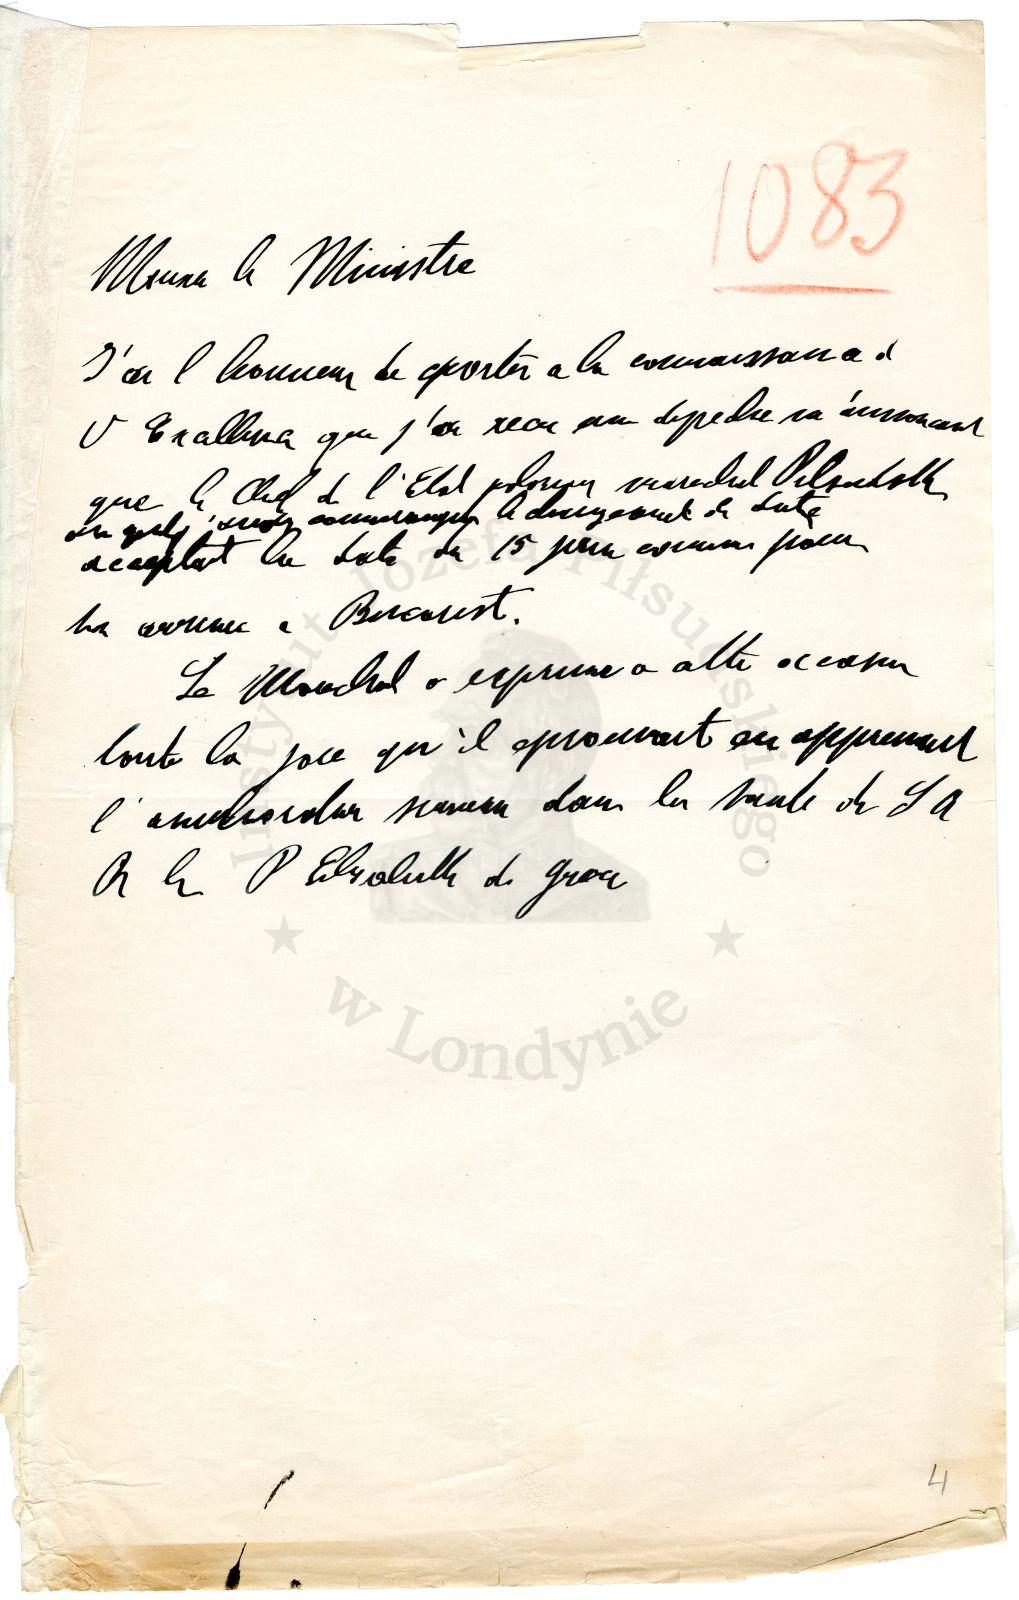 1083
Monsieur le Ministre
J'ai l'honneur de porter a la connaissance d
V Excellence que j'ai recu une depeche m'annoncant
que le Chef de l'Etat polonais marechal Pilsudski
le changement de date
acceptait la date du 15 pour
sa a Bucarest.
Le Marechal a exprime a cette occasion
toute la joie qu'il eprouvait en apprenant
l'amelioration survenu dans la sante de S A
R la P Elisabeth de Grece
4
Instytut Józefa Piłsudskiego
w Londynie